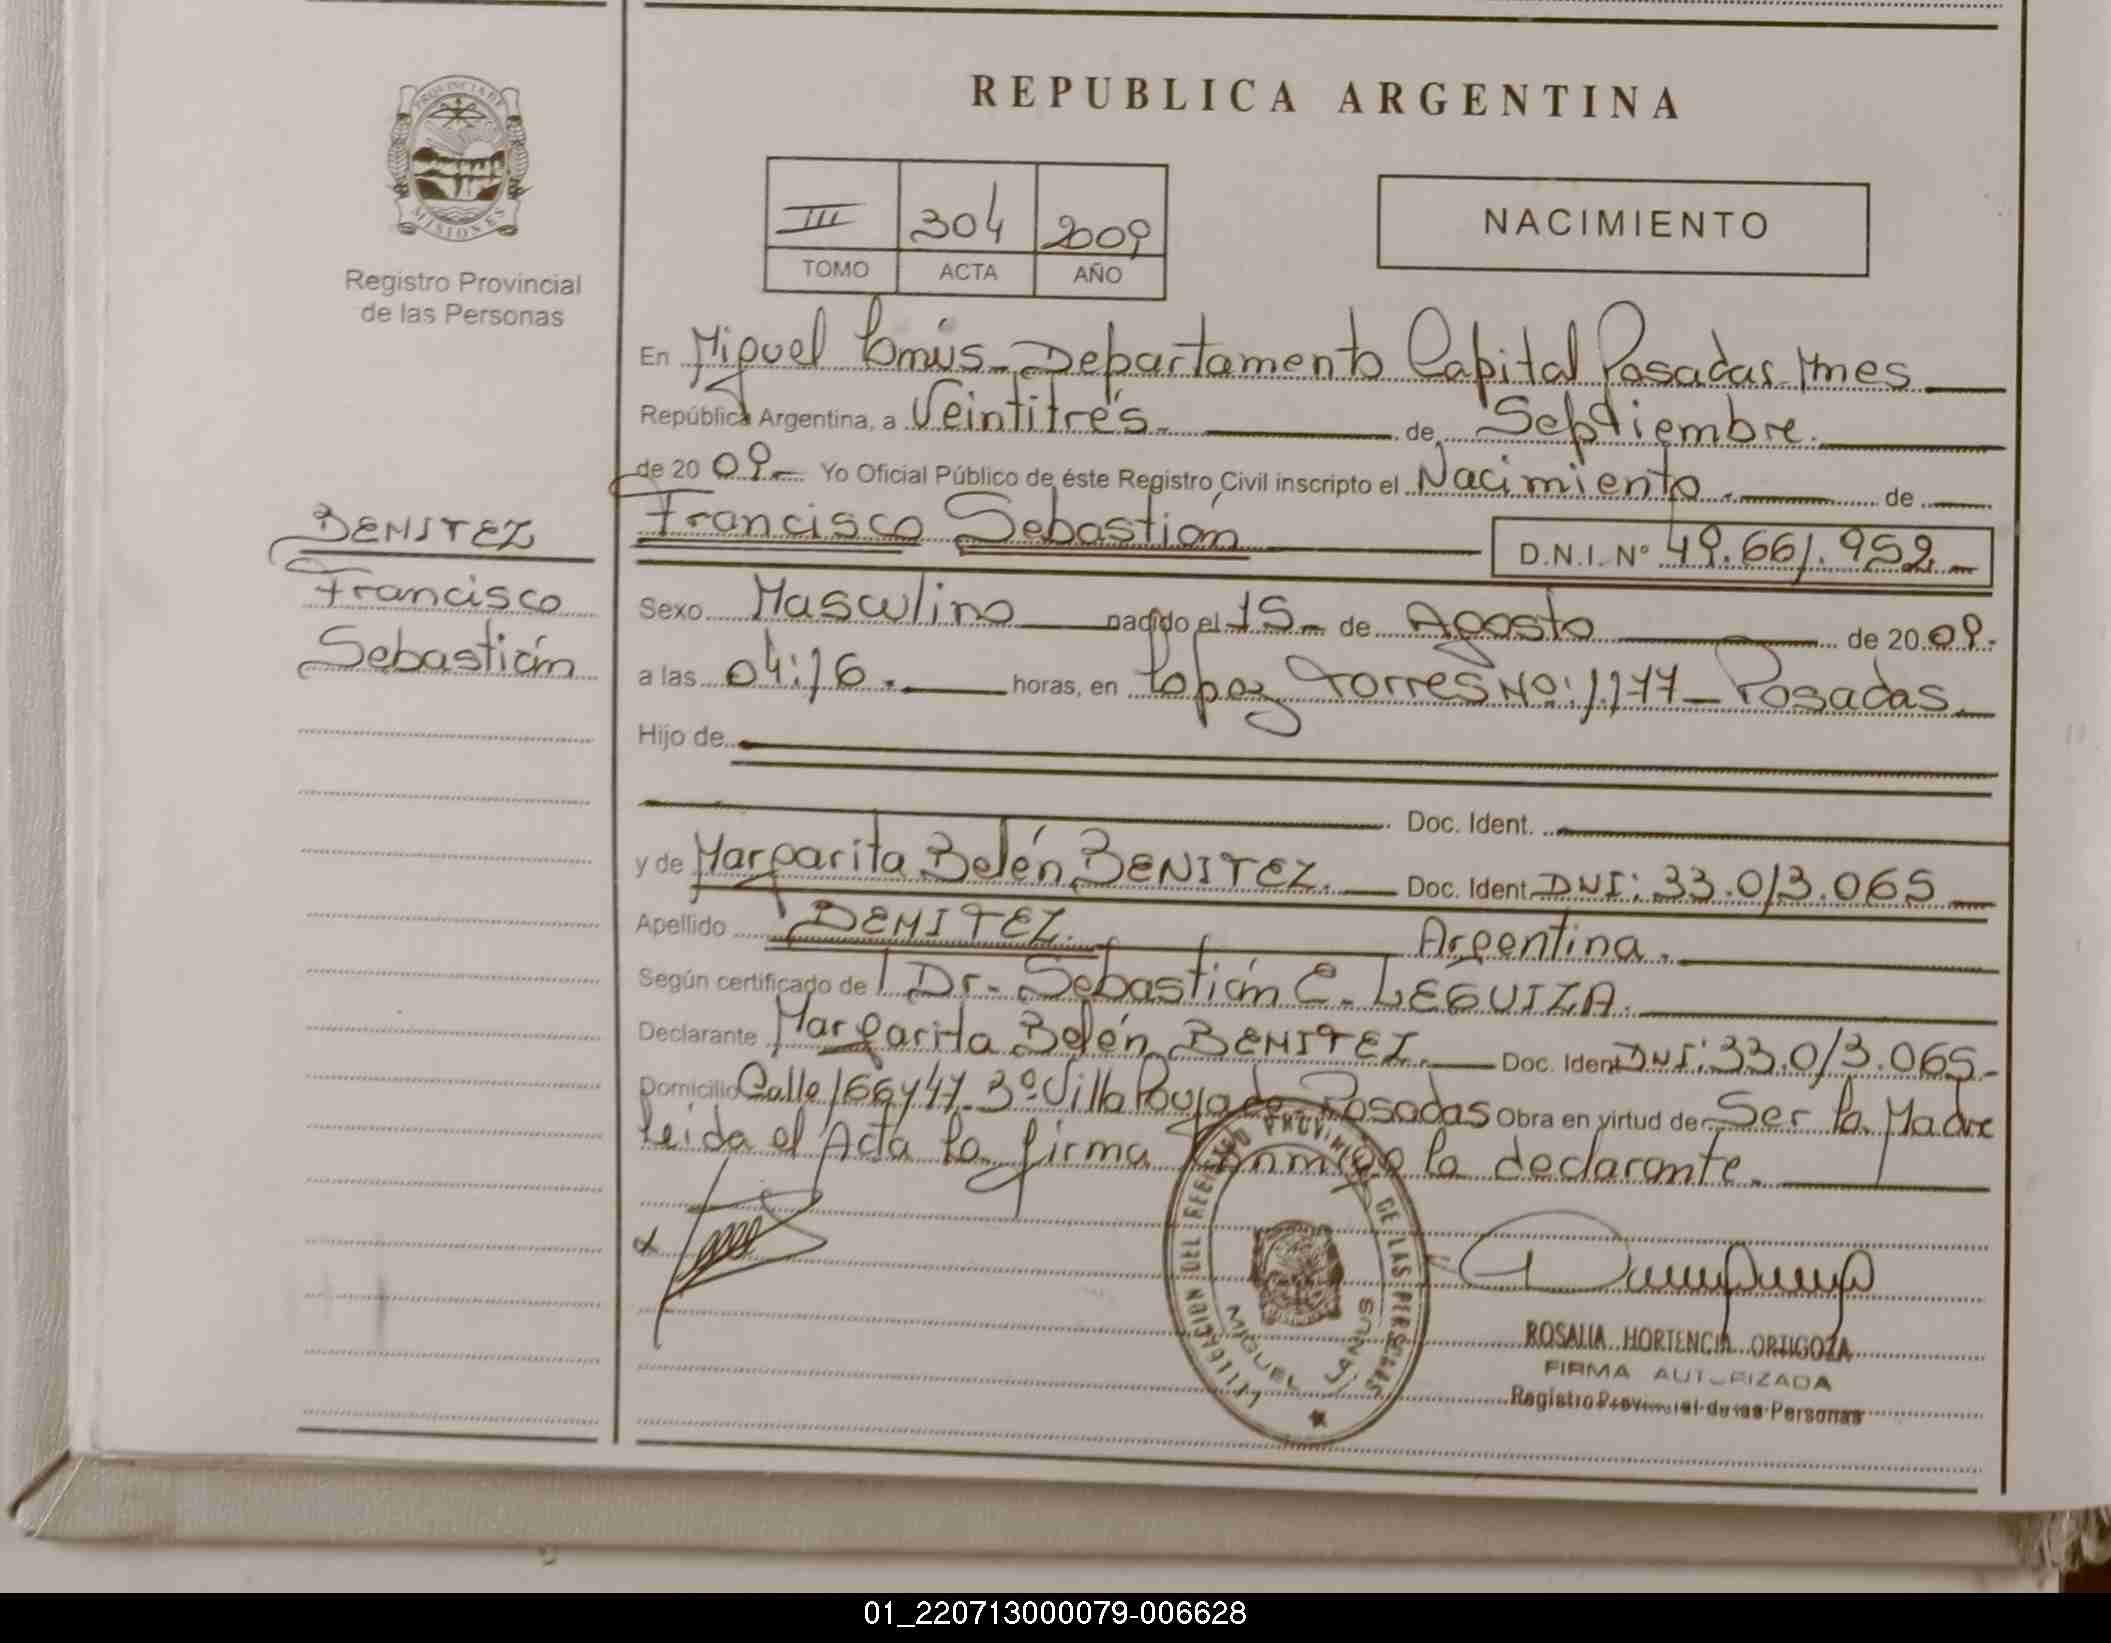 REPUBLICA ARGENTINA
PROVINCIA DE
MISIONES
Registro Provincial
de las Personas
III 304 2009
TOMO ACTA AÑO
NACIMIENTO
En Miguel Lanús - Departamento Capital Posadas Mnes
República Argentina, a Veintitrés. de Septiembre.
de 20 09.- Yo Oficial Público de éste Registro Civil inscripto el Nacimiento. de
Francisco Sebastián D.N.I. Nº 49.661.952
BENITEZ
Francisco
Sebastián
Sexo Masculino nacido el 15- de Agosto de 20 09.-
a las 04:16. horas, en López Torres Nº: 1.177 - Posadas.
Hijo de
Doc. Ident.
y de Margarita Belén BENITEZ. Doc. Ident. DNI: 33.013.065
Apellido BENITEZ. Argentina.
Según certificado de l Dr. Sebastián E. LEGUIZA.
Declarante Margarita Belén BENITEZ. Doc. Ident DNI: 33.013.065-
Domicilio Calle 166 y 47. 3º Villa Posadas Obra en virtud de Ser la Madre
leida el Acta la firma conmigo la declarante.
DELEGACION DEL REGISTRO PROVINCIAL DE LAS PERSONAS
MIGUEL LANUS
ROSALIA HORTENCIA ORTIGOZA
FIRMA AUTORIZADA
Registro Provincial de las Personas
01_220713000079-006628